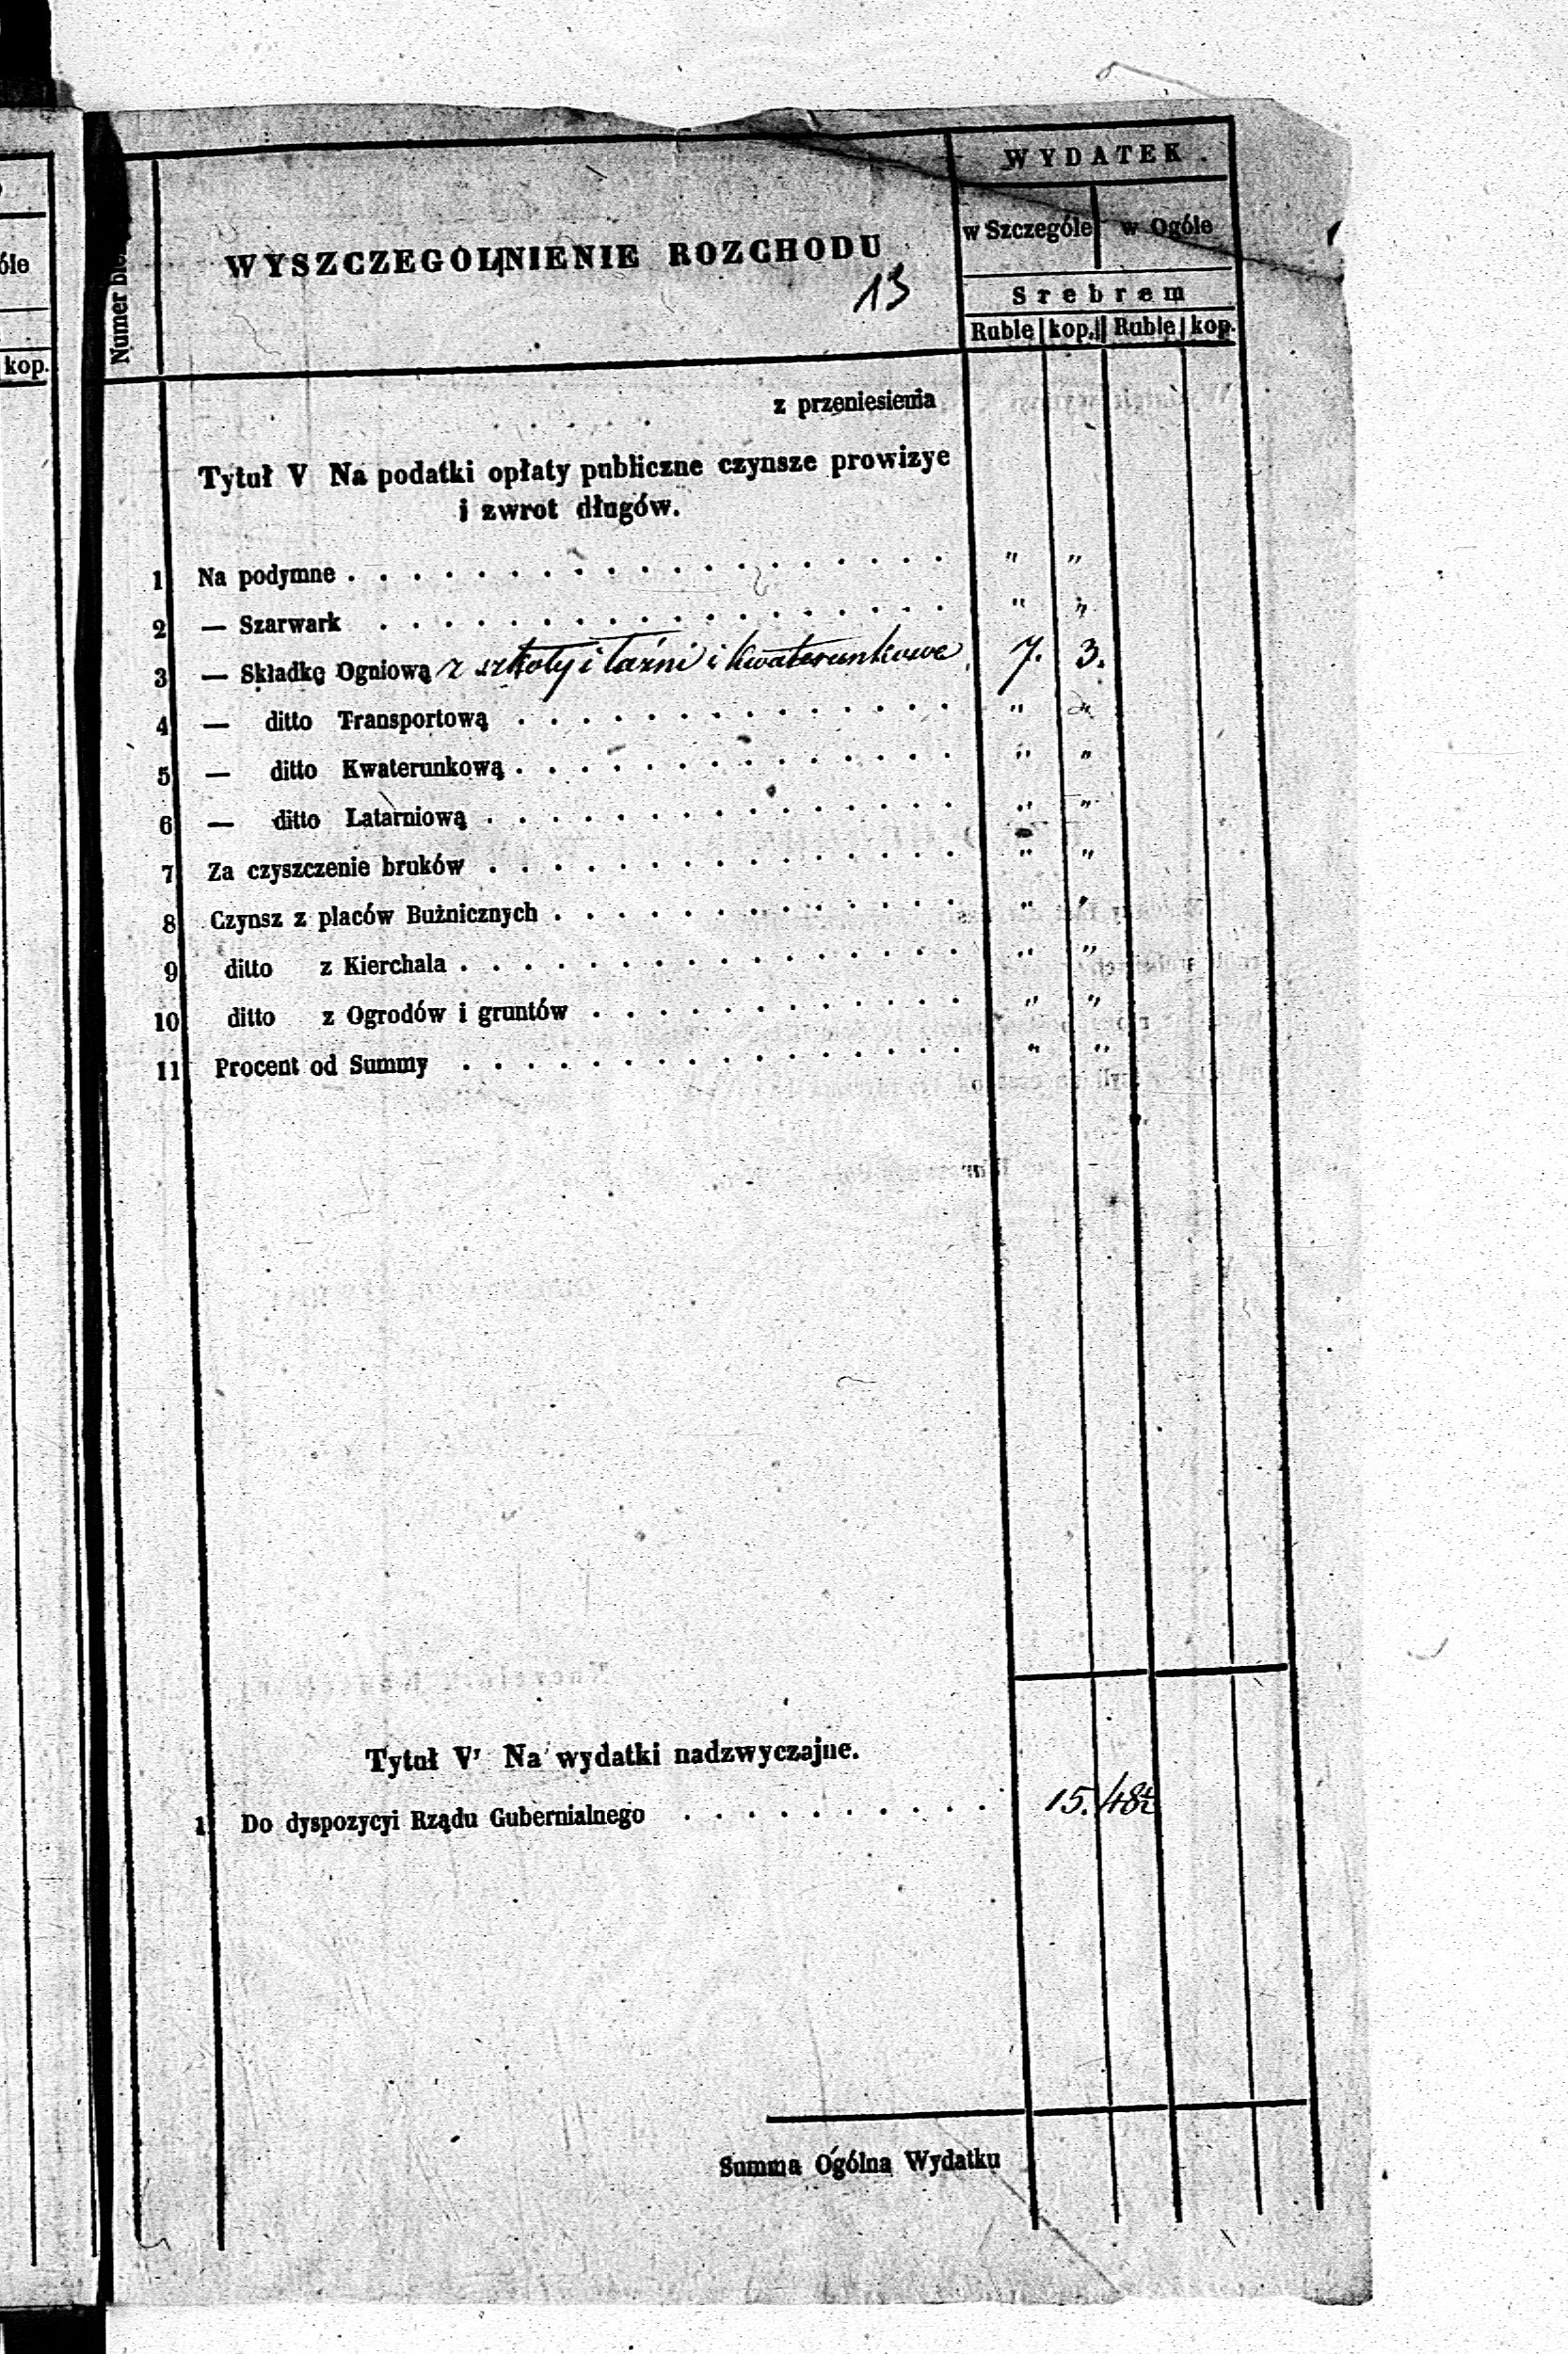 óle
kop.
WYDATEK.
w Szczególe w Ogóle
Srebrem
Ruble kop. Ruble kop.
Numer
WYSZCZEGOLNIENIE ROZCHODU
13
z przeniesienia
Tytuł V Na podatki opłaty publiczne czynsze prowizye
i zwrot długów.
1 Na podymne . . . . . . . . . . . . . . . . . . . " "
2 — Szarwark . . . . . . . . . . . . . . . . . . " "
3 — Składkę Ogniową z szkoły i łaźni i kwaterunkowe 7. 3.
4 — ditto Transportową . . . . . . . . . . . . . . " "
5 — ditto Kwaterunkową . . . . . . . . . . . . . . " "
6 — ditto Latarniową . . . . . . . . . . . . . . . " "
7 Za czyszczenie bruków . . . . . . . . . . . . . . . " "
8 Czynsz z placów Bużnicznych . . . . . . . . . . . . . " "
9 ditto z Kierchala . . . . . . . . . . . . . . . . " "
10 ditto z Ogrodów i gruntów . . . . . . . . . . . . " "
11 Procent od Summy . . . . . . . . . . . . . . . . " "
Tytuł V' Na wydatki nadzwyczajne.
1 Do dyspozycyi Rządu Gubernialnego . . . . . . . . . . 15. 48½
Summa Ogólna Wydatku